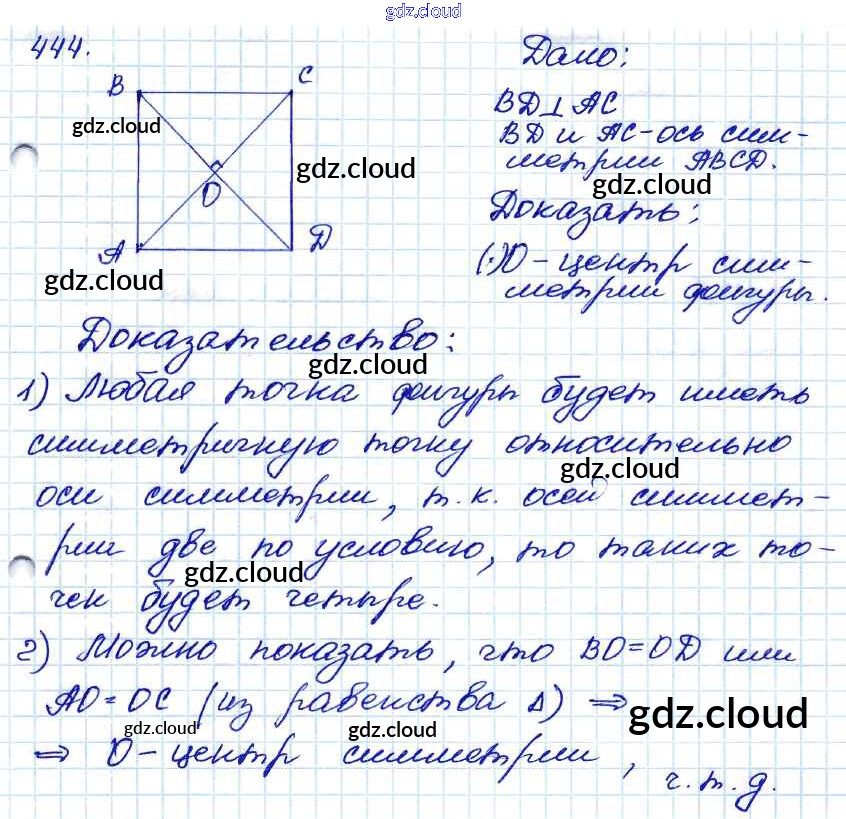 gdz.cloud
444.
B C
gdz.cloud
gdz.cloud
O
A D
gdz.cloud
Дано:
BD⊥AC
BD и AC-ось сим-
метрии ABCD.
gdz.cloud
Доказать:
(·)O-центр сим-
метрии фигуры.
Доказательство:
gdz.cloud
1) Любая точка фигуры будет иметь
симметричную точку относительно
gdz.cloud
оси симметрии, т.к. осей симмет-
рии две по условию, то таких то-
gdz.cloud
чек будет четыре.
2) Можно показать, что BO=OD или
AO=OC (из равенства Δ) ⇒
gdz.cloud gdz.cloud
⇒ O-центр симметрии,
ч.т.д.